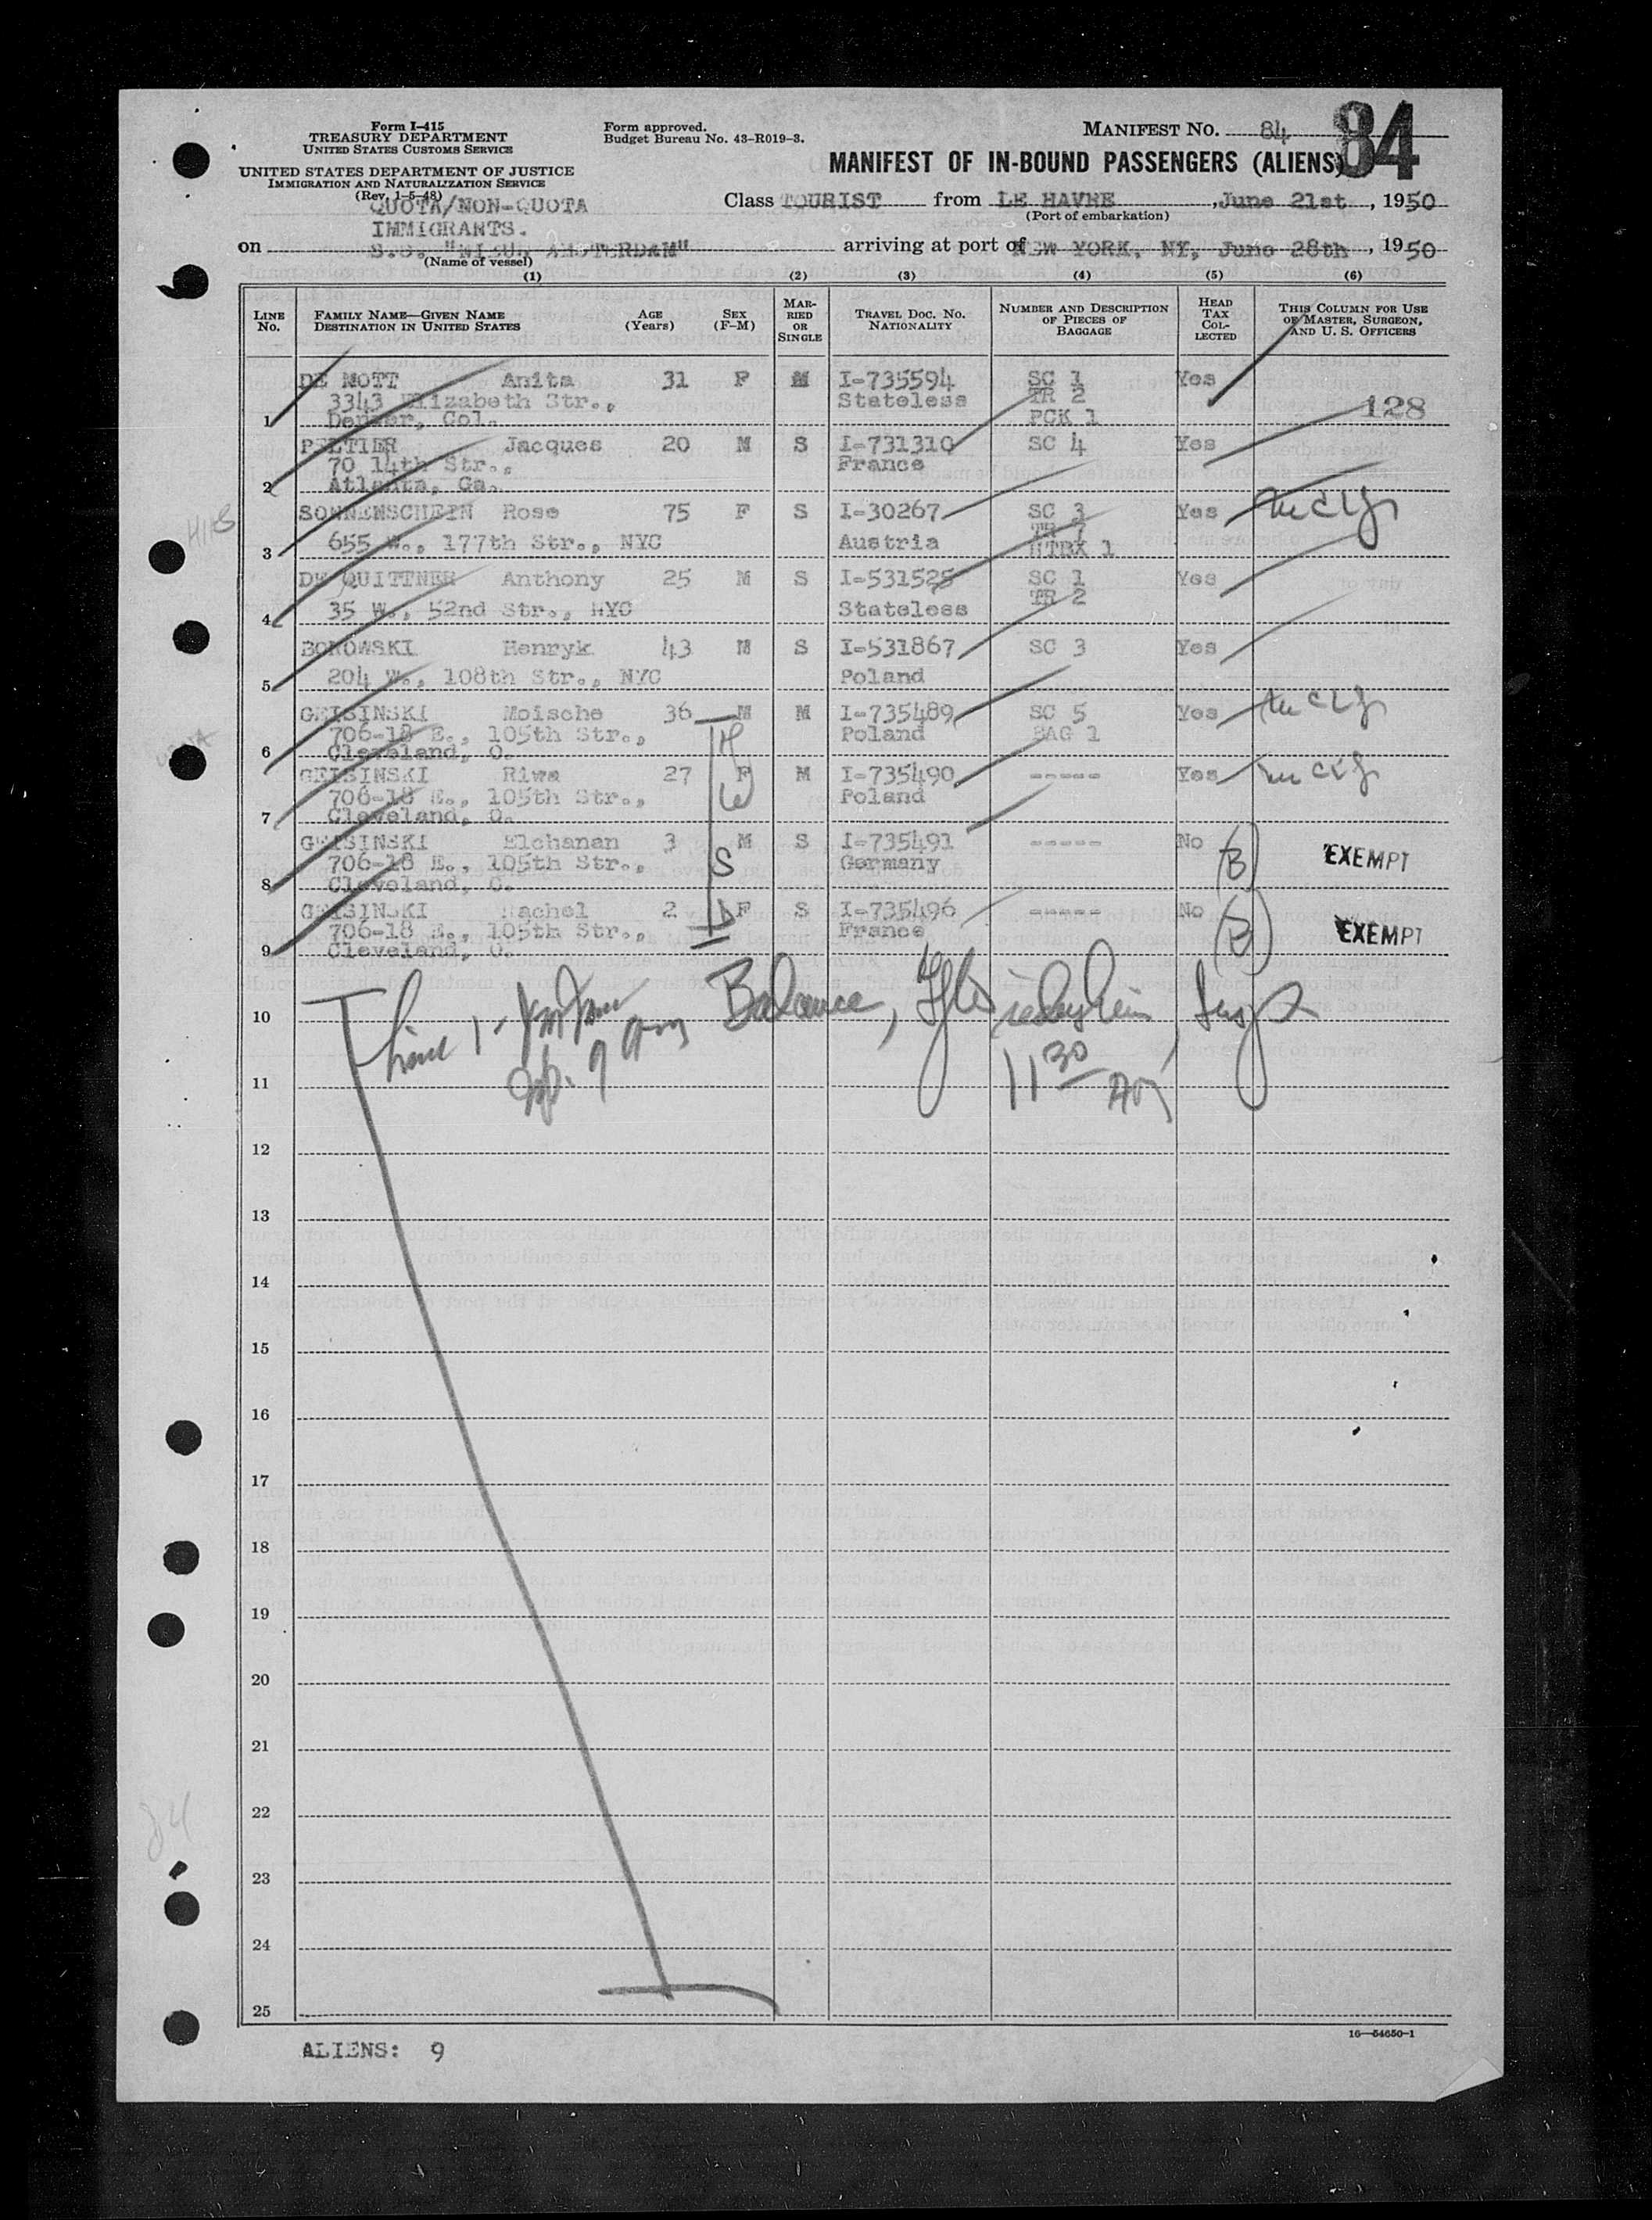 Form I-415
TREASURY DEPARTMENT
UNITED STATES CUSTOMS SERVICE
UNITED STATES DEPARTMENT OF JUSTICE
IMMIGRATION AND NATURALIZATION SERVICE
(Rev. 1-5-48)
Form approved.
Budget Bureau No. 43-R019-3.
MANIFEST NO. 84
84
MANIFEST OF IN-BOUND PASSENGERS (ALIENS)
QUOTA/NON-QUOTA
IMMIGRANTS.
Class TOURIST from LE HAVRE, June 21st, 1950
(Port of embarkation)
on S.S. "NIEUW AMSTERDAM" arriving at port of NEW YORK, NY, June 28th, 1950
(Name of vessel)
(1) (2) (3) (4) (5) (6)
LINE No. FAMILY NAME—GIVEN NAME DESTINATION IN UNITED STATES AGE (Years) SEX (F-M) MARRIED OR SINGLE TRAVEL DOC. NO. NATIONALITY NUMBER AND DESCRIPTION OF PIECES OF BAGGAGE HEAD TAX COLLECTED THIS COLUMN FOR USE OF MASTER, SURGEON, AND U. S. OFFICERS
DE NOTT Anita 31 F M I-735594 SC 1 Yes
3343 Elizabeth Str., Stateless TR 2
1 Denver, Col. PCK 1 128
PELTIER Jacques 20 M S I-731310 SC 4 Yes
70 14th Str., France
2 Atlanta, Ga.
SONNENSCHEIN Rose 75 F S I-30267 SC 3 Yes
TR 7
3 655 W., 177th Str., NYC Austria HTBX 1
DE QUITTNER Anthony 25 M S I-531525 SC 1 Yes
TR 2
4 35 W., 52nd Str., NYC Stateless
BOROWSKI Henryk 43 M S I-531867 SC 3 Yes
5 204 W., 108th Str., NYC Poland
GEISINSKI Moische 36 M M I-735489 SC 5 Yes
706-18 E., 105th Str., Poland BAG 1
6 Cleveland, O.
GEISINSKI Riwa 27 F M I-735490 ----- Yes
706-18 E., 105th Str., Poland
7 Cleveland, O.
GEISINSKI Elchanan 3 M S I-735491 ----- No (B) EXEMPT
706-18 E., 105th Str., Germany
8 Cleveland, O.
GEISINSKI Rachel 2 F S I-735496 ----- No (B) EXEMPT
706-18 E., 105th Str., France
9 Cleveland, O.
10
Line 1- Balance,
11 30 AM
11
12
13
14
15
16
17
18
19
20
21
22
23
24
25
84
16—54650-1
ALIENS: 9